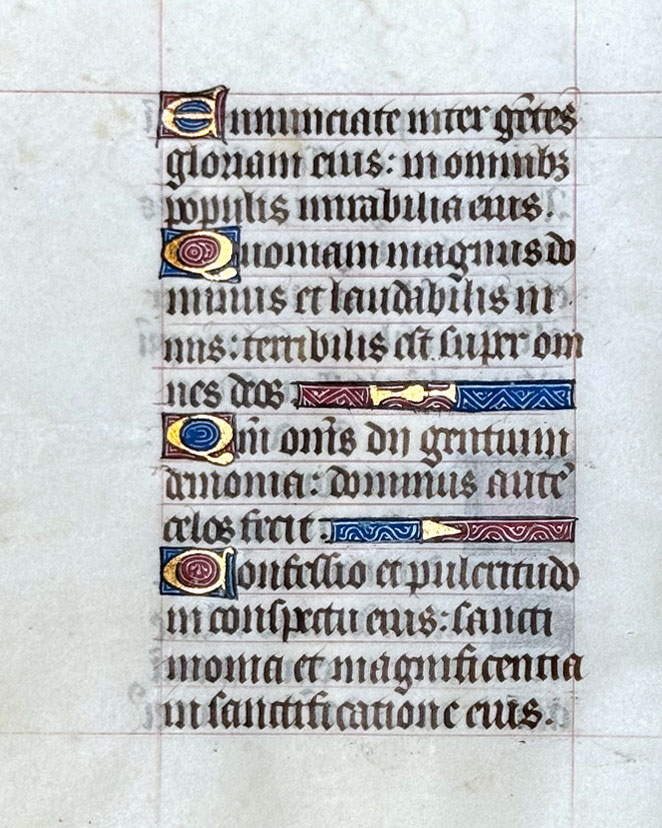 Annunciate inter gētes
gloriam eius: in omnibꝫ
populis mirabilia eius.
Quoniam magnus do
minus et laudabilis ni
mis: terribilis est super om
nes deos
Qm̄ om̄s dij gentium
demonia: dominus autē
celos fecit.
Confessio et pulcritudo
in conspectu eius: sancti
monia et magnificentia
in sanctificatione eius.